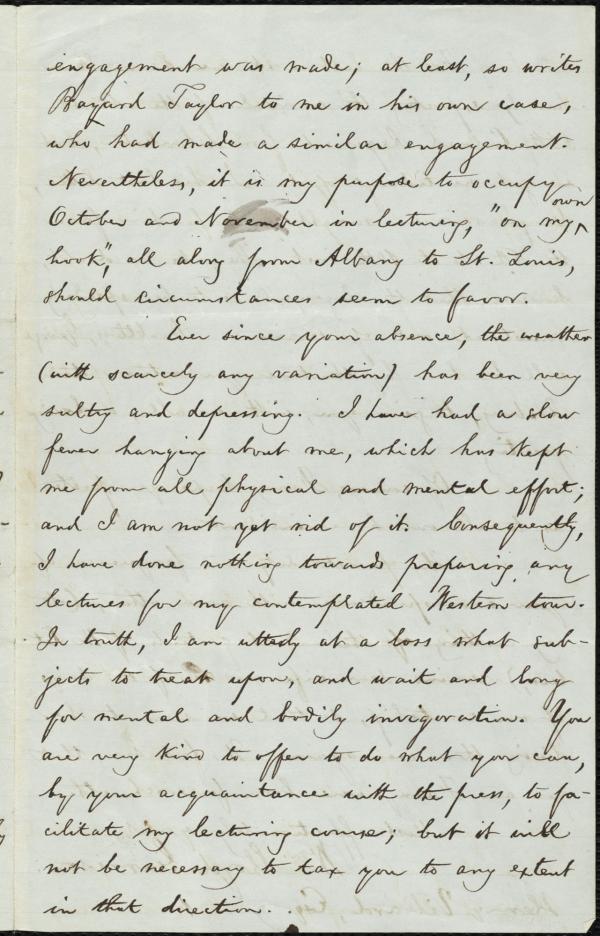 engagement was made; at least, so writes
Bayard Taylor to me in his own case,
who had made a similar engagement.
Nevertheless, it is my purpose to occupy
October and November in lecturing, "on my own
hook", all along from Albany to St. Louis,
should circumstances seem to favor.
Ever since your absence, the weather
(with scarcely any variation) has been very
sultry and depressing. I have had a slow
fever hanging about me, which has kept
me from all physical and mental effort;
and I am not yet rid of it. Consequently,
I have done nothing towards preparing any
lectures for my contemplated Western tour.
In truth, I am utterly at a loss what sub-
jects to treat upon, and wait and long
for mental and bodily invigoration. You
are very kind to offer to do what you can,
by your acquaintance with the press, to fa-
cilitate my lecturing course; but it will
not be necessary to tax you to any extent
in that direction.